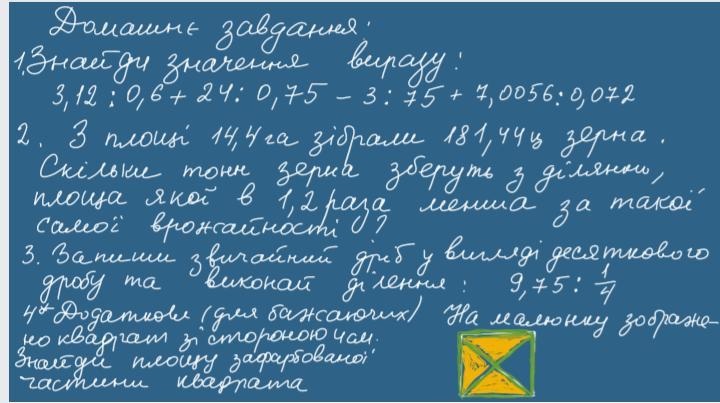 Домашнє завдання:
1. Знайди значення виразу:
3,12 : 0,6 + 24 : 0,75 – 3 : 75 + 7,0056 : 0,072
2. З площі 14,4 га зібрали 181,44 ц зерна.
Скільки тонн зерна зберуть з ділянки,
площа якої в 1,2 раза менша за такої
самої врожайності?
3. Запиши звичайний дріб у вигляді десяткового
дробу та виконай ділення: 9,75 : 1/4
4* Додаткове (для бажаючих) На малюнку зображе-
но квадрат зі стороною 4 см.
Знайди площу зафарбованої
частини квадрата